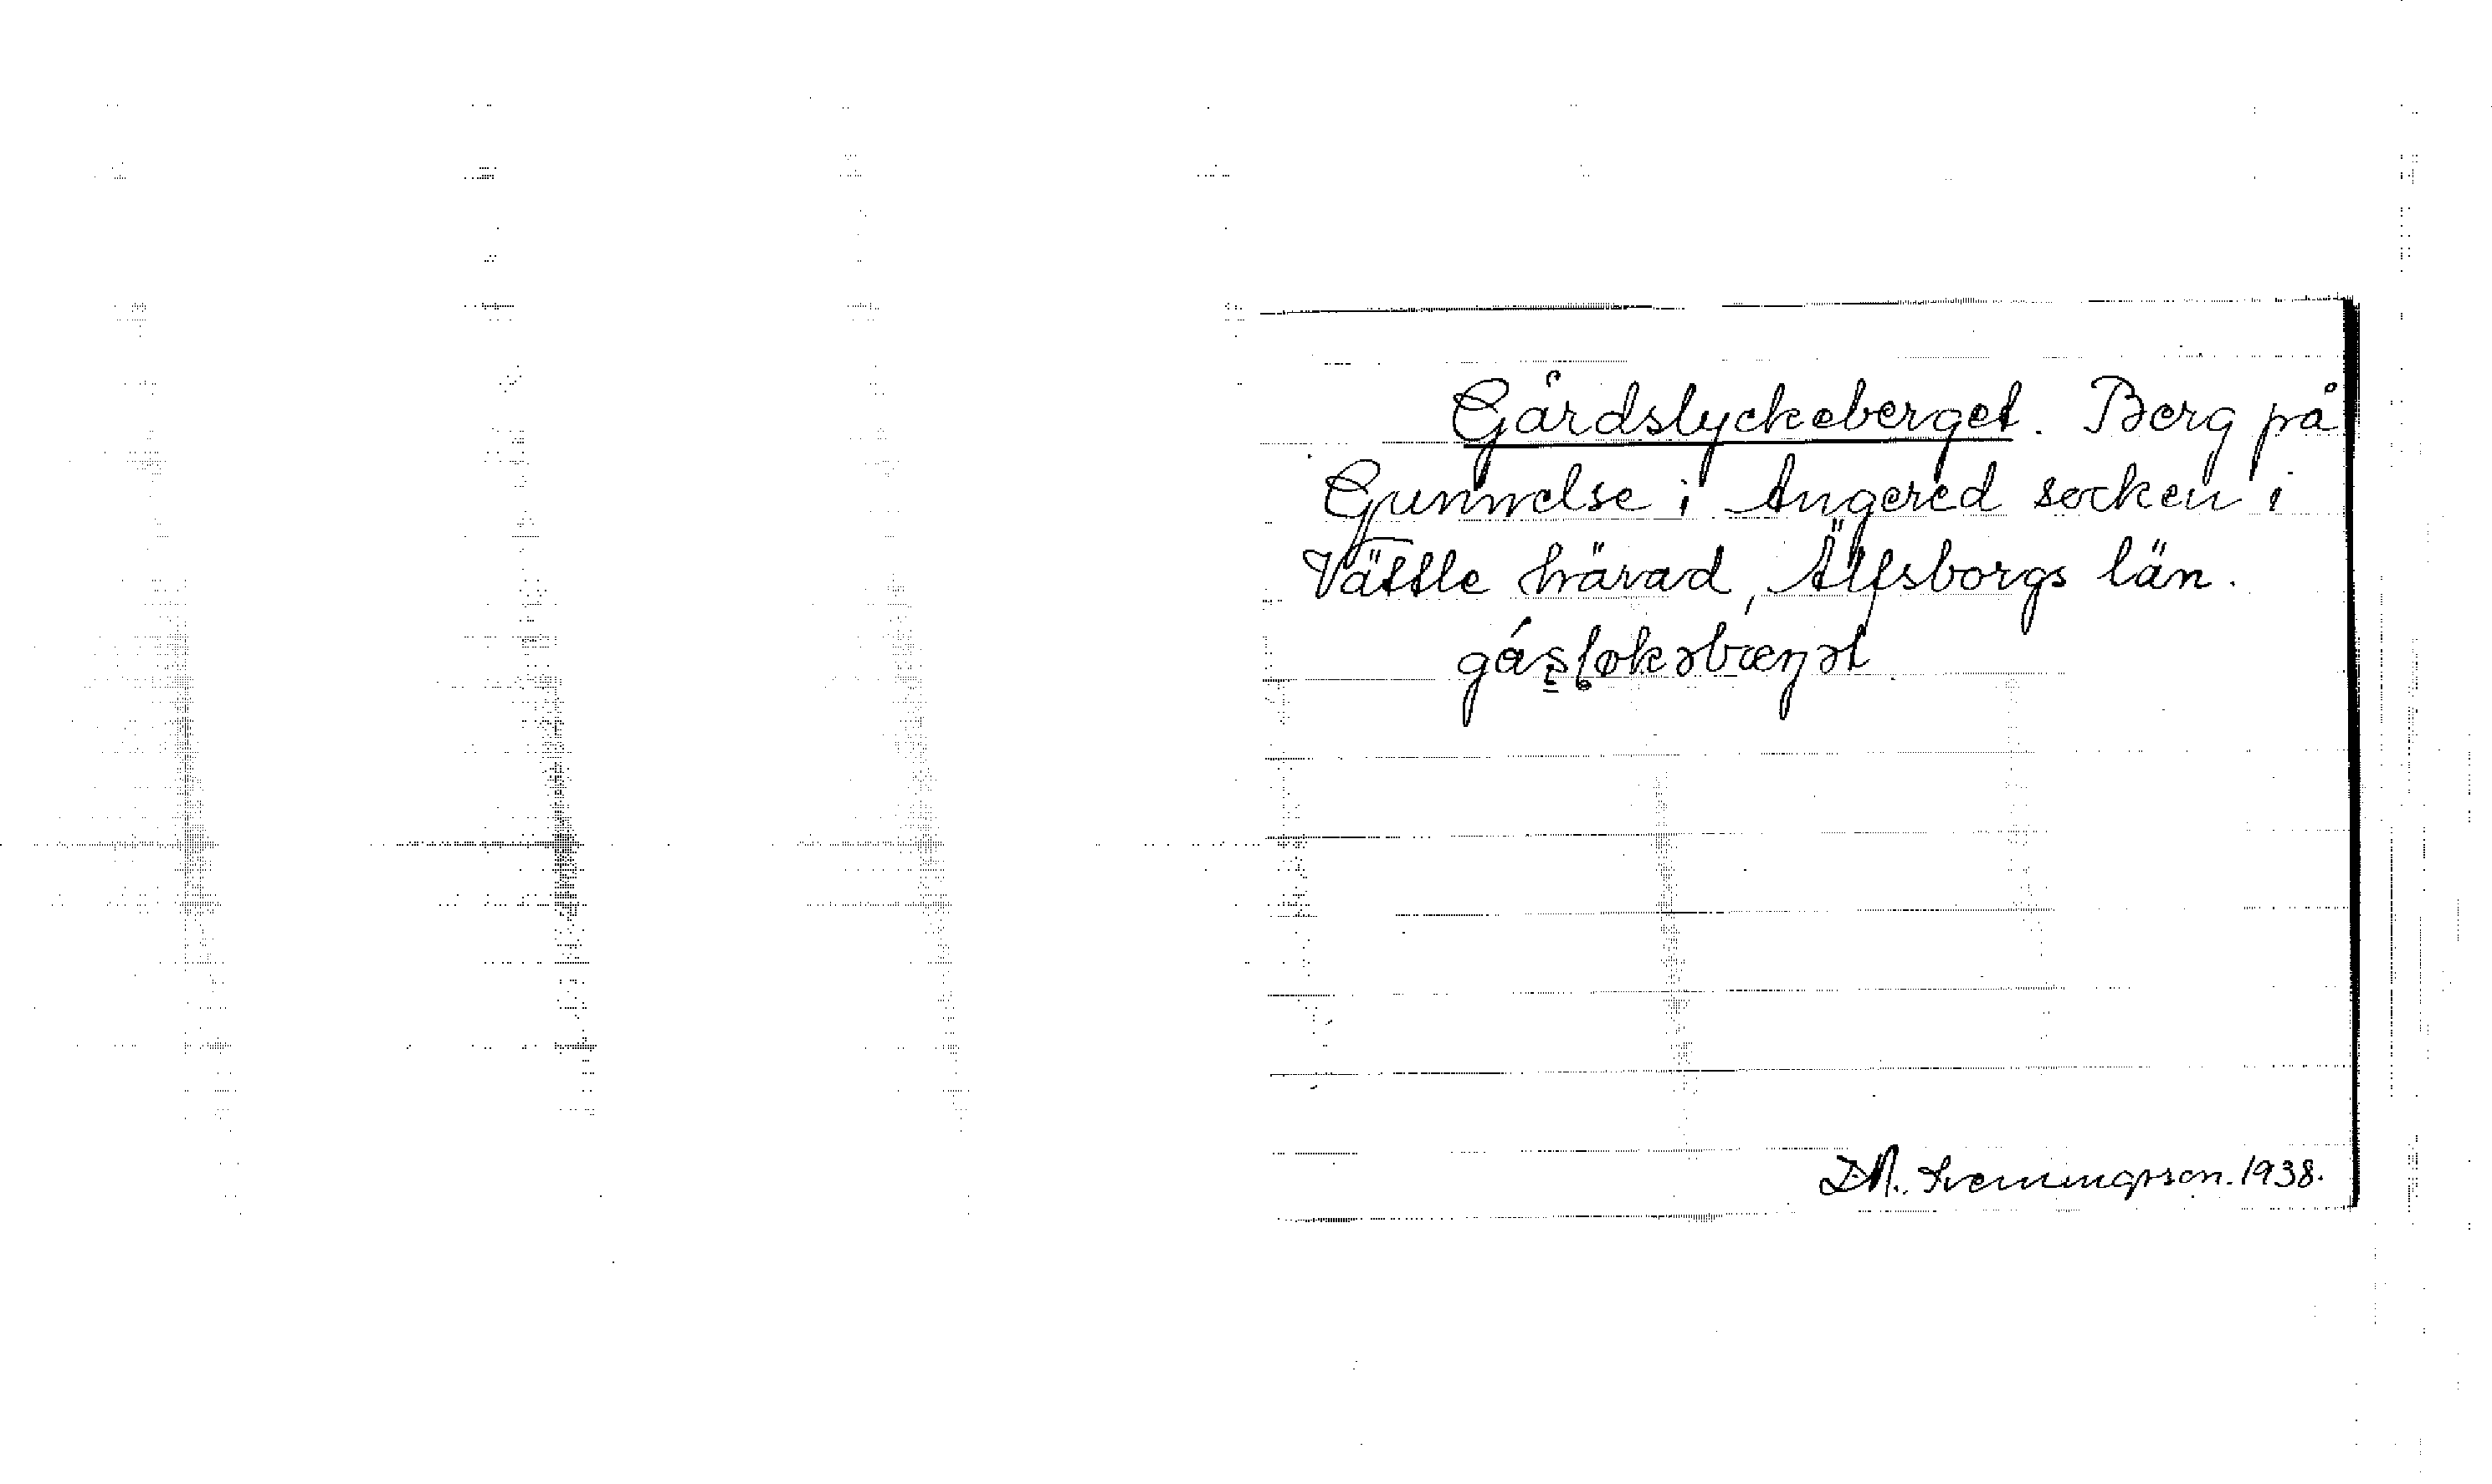 Gårdslyckeberget. Berg på
Gunnelse i Angered socken i
Vättle härad, Älfsborgs län.
gáşļøkəbæŋət
D.A. Svenningsson. 1938.